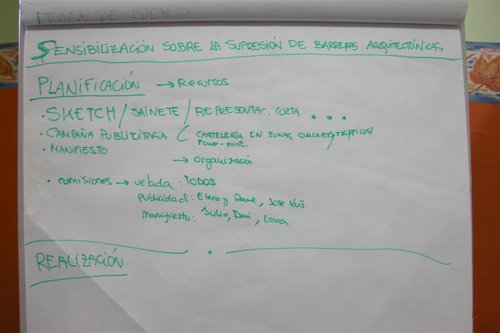 SENSIBILIZACIÓN SOBRE LA SUPRESIÓN DE BARRERAS ARQUITECTÓNICAS
PLANIFICACIÓN → RECURSOS
· SKETCH / SAINETE / REPRESENTAR. CORTA • • •
· CAMPAÑA PUBLICITARIA ( CARTELERÍA EN ZONAS
POWER-POINT
· MANIFIESTO
→ ORGANIZACIÓN
· COMISIONES → velada: TODOS
Publicidad: Elena y , Jose Luis
Manifiesto: Julio, Dani, Laura
REALIZACIÓN